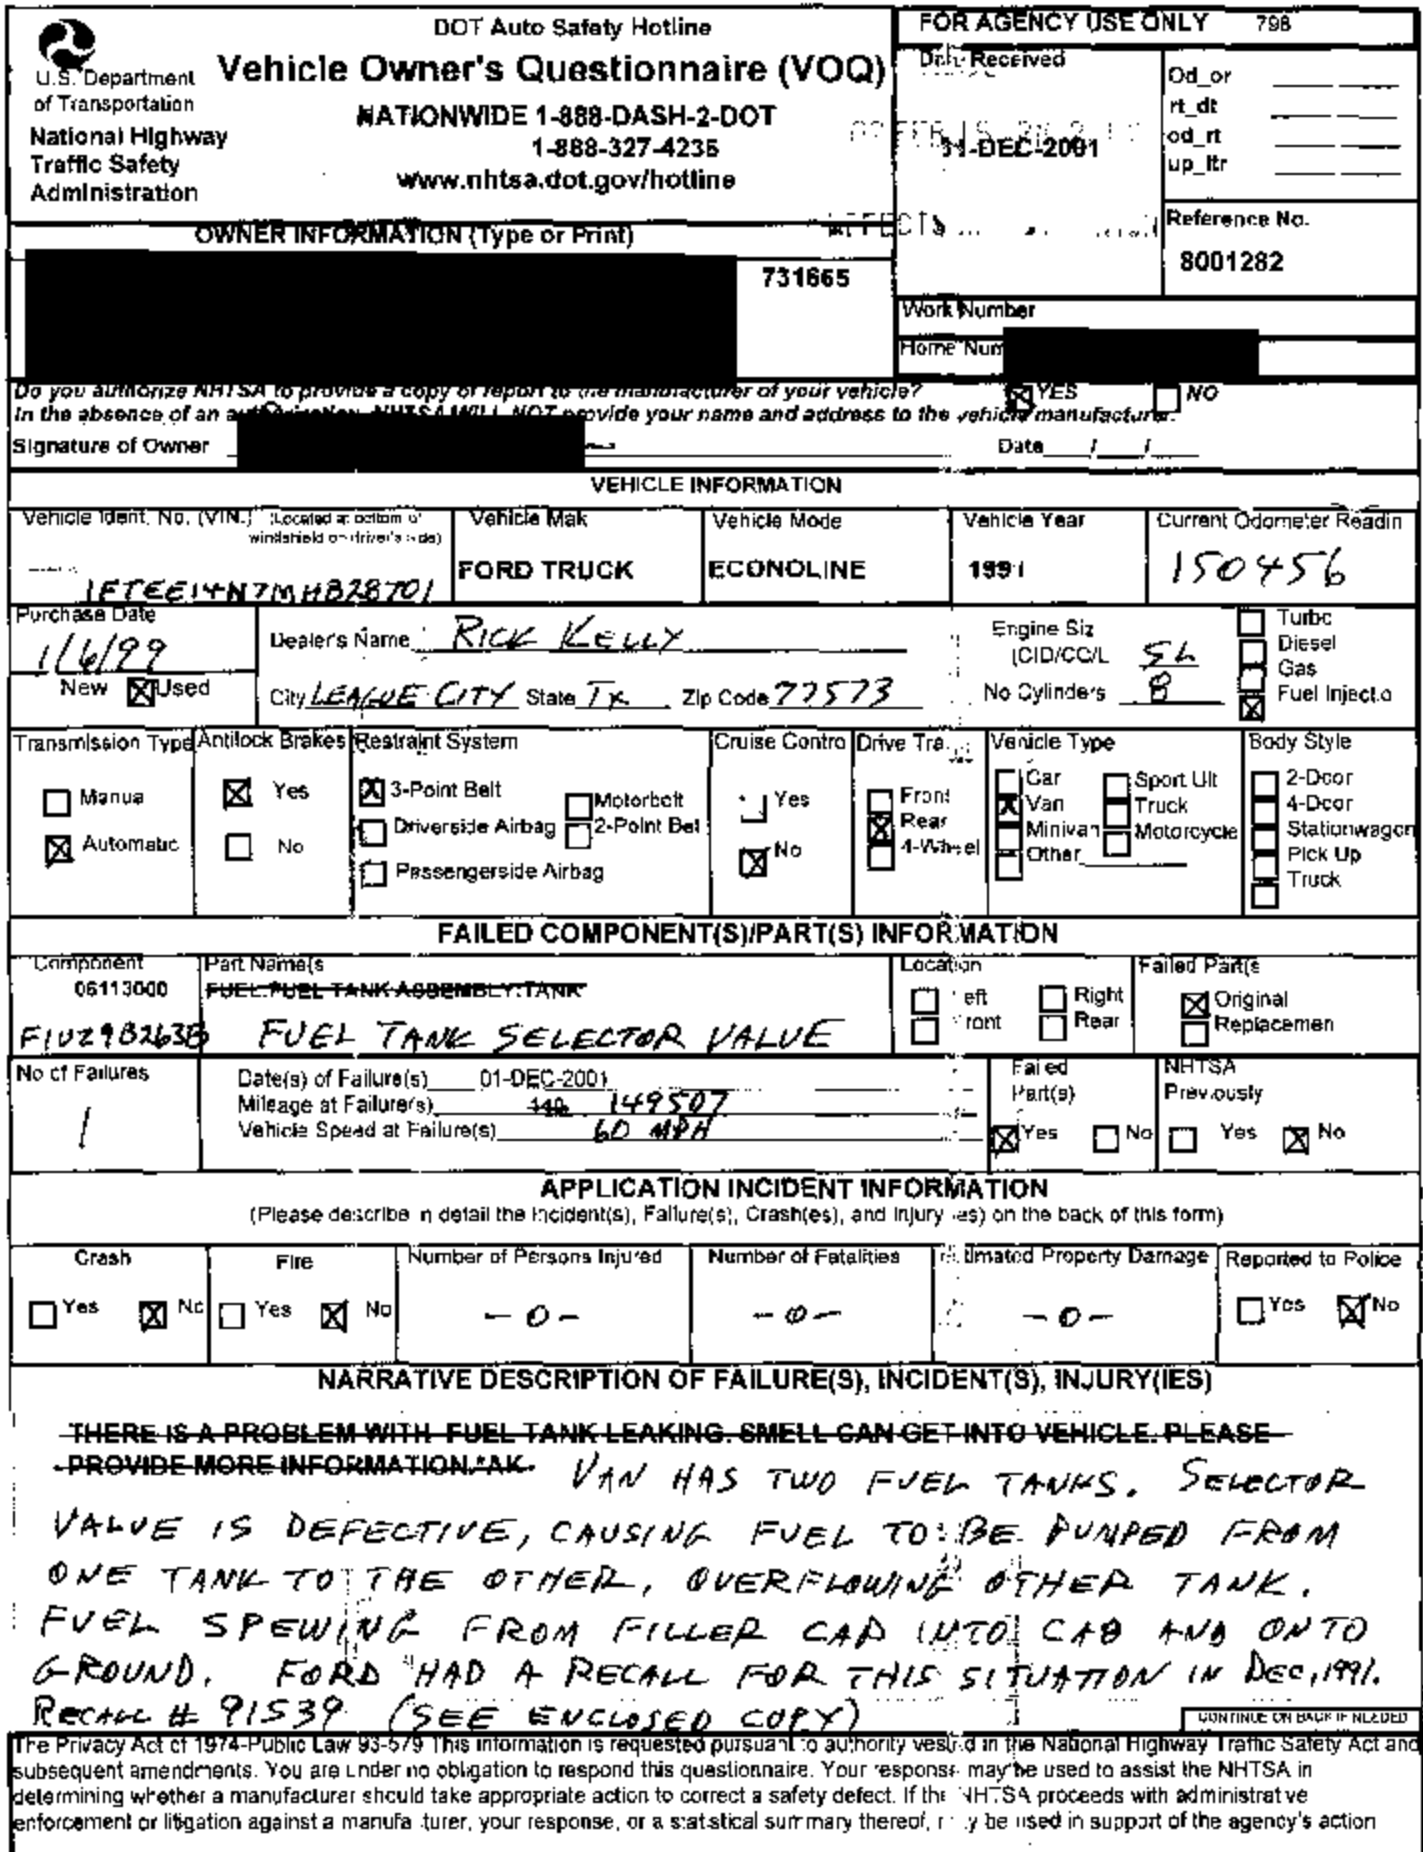 DOT Auto Safety Hotline
Vehicle Owner's Questionnaire (VOQ)
NATIONWIDE 1-888-DASH-2-DOT
1-888-327-4236
www.nhtsa.dot.gov/hotline
U.S. Department
of Transportation
National Highway
Traffic Safety
Administration
FOR AGENCY USE ONLY 798
Received
31-DEC-2001
Od_or
rt_dt
od_rt
up_ltr
Reference No.
8001282
OWNER INFORMATION (Type or Print)
731665
Work Number
Home Num
Do you authorize NHTSA to provide a copy of report to the manufacturer of your vehicle? YES NO
In the absence of an NHTSA WILL NOT provide your name and address to the vehicle manufacturer.
Signature of Owner Date / /
VEHICLE INFORMATION
Vehicle Ident. No. (VIN.) (Located at bottom of
windshield on driver's side)
1FTEE14N7MHB28701
Vehicle Mak
FORD TRUCK
Vehicle Mode
ECONOLINE
Vehicle Year
1991
Current Odometer Readin
150456
Purchase Date
1/6/99
New Used
Dealer's Name RICK KELLY
City LEAGUE CITY State TX Zip Code 77573
Engine Siz
(CID/CC/L 5L
No Cylinders 8
Turbo
Diesel
Gas
Fuel Injectio
Transmission Type
Manua
Automatic
Antilock Brakes
Yes
No
Restraint System
3-Point Belt
Driverside Airbag
Passengerside Airbag
Motorbelt
2-Point Bel
Cruise Contro
Yes
No
Drive Tra
Front
Rear
4-Wheel
Vehicle Type
Car
Van
Minivan
Other
Sport Ult
Truck
Motorcycle
Body Style
2-Door
4-Door
Stationwagon
Pick Up
Truck
FAILED COMPONENT(S)/PART(S) INFORMATION
Component
06113000
F1UZ9B263B
Part Name(s
FUEL:FUEL TANK ASSEMBLY:TANK
FUEL TANK SELECTOR VALUE
Location
eft
ront
Right
Rear
Failed Part(s
Original
Replacemen
No of Failures
1
Date(s) of Failure(s) 01-DEC-2001
Mileage at Failure(s) 149507
Vehicle Speed at Failure(s) 60 MPH
Failed
Part(s)
Yes No
NHTSA
Previously
Yes No
APPLICATION INCIDENT INFORMATION
(Please describe in detail the Incident(s), Failure(s), Crash(es), and Injury ies) on the back of this form)
Crash
Yes No
Fire
Yes No
Number of Persons Injured
-0-
Number of Fatalities
-0-
timated Property Damage
-0-
Reported to Police
Yes No
NARRATIVE DESCRIPTION OF FAILURE(S), INCIDENT(S), INJURY(IES)
THERE IS A PROBLEM WITH FUEL TANK LEAKING. SMELL CAN GET INTO VEHICLE. PLEASE
PROVIDE MORE INFORMATION.*AK VAN HAS TWO FUEL TANKS. SELECTOR
VALUE IS DEFECTIVE, CAUSING FUEL TO BE PUMPED FROM
ONE TANK TO THE OTHER, OVERFLOWING OTHER TANK.
FUEL SPEWING FROM FILLER CAP INTO CAB AND ONTO
GROUND. FORD HAD A RECALL FOR THIS SITUATION IN DEC, 1991.
RECALL # 91539 (SEE ENCLOSED COPY)
CONTINUE ON BACK IF NEEDED
The Privacy Act of 1974-Public Law 93-579 This information is requested pursuant to authority vested in the National Highway Traffic Safety Act and
subsequent amendments. You are under no obligation to respond this questionnaire. Your response may be used to assist the NHTSA in
determining whether a manufacturer should take appropriate action to correct a safety defect. If the NHTSA proceeds with administrative
enforcement or litigation against a manufa turer, your response, or a statistical summary thereof, may be used in support of the agency's action